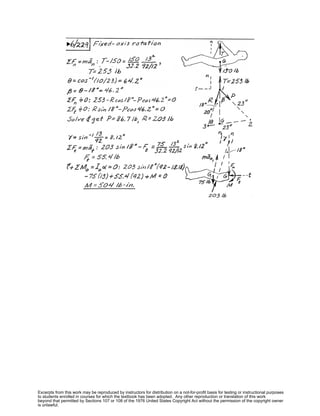 ▶6/229 Fixed-axis rotation
ΣFₙ = māₙ: T-150 = 150/32.2 13²/92/12,
T = 253 lb
θ = cos⁻¹(10/23) = 64.2°
β = θ-18° = 46.2°
ΣFₙ ≠ 0: 253-R cos18°-P cos46.2° = 0
ΣFₜ ≠ 0: R sin18°-P cos46.2° = 0
Solve & get P = 86.7 lb, R = 203 lb
γ = sin⁻¹ 13/92 = 8.12°
ΣFₙ = māₙ: 203 sin18°-F₅ = 75/32.2 13²/92/12 sin 8.12°
F₅ = 55.4 lb
+ΣM = Iα = 0: 203 sin18°(92-18)
-75(13)+55.4(92)+M = 0
M = 504 lb-in.
n
150 lb
G
T = 253 lb
R
P
18"
23"
20"
23"
18°
māₙ
G
75 lb
M
203 lb
Excerpts from this work may be reproduced by instructors for distribution on a not-for-profit basis for testing or instructional purposes
to students enrolled in courses for which the textbook has been adopted. Any other reproduction or translation of this work
beyond that permitted by Sections 107 or 108 of the 1976 United States Copyright Act without the permission of the copyright owner
is unlawful.